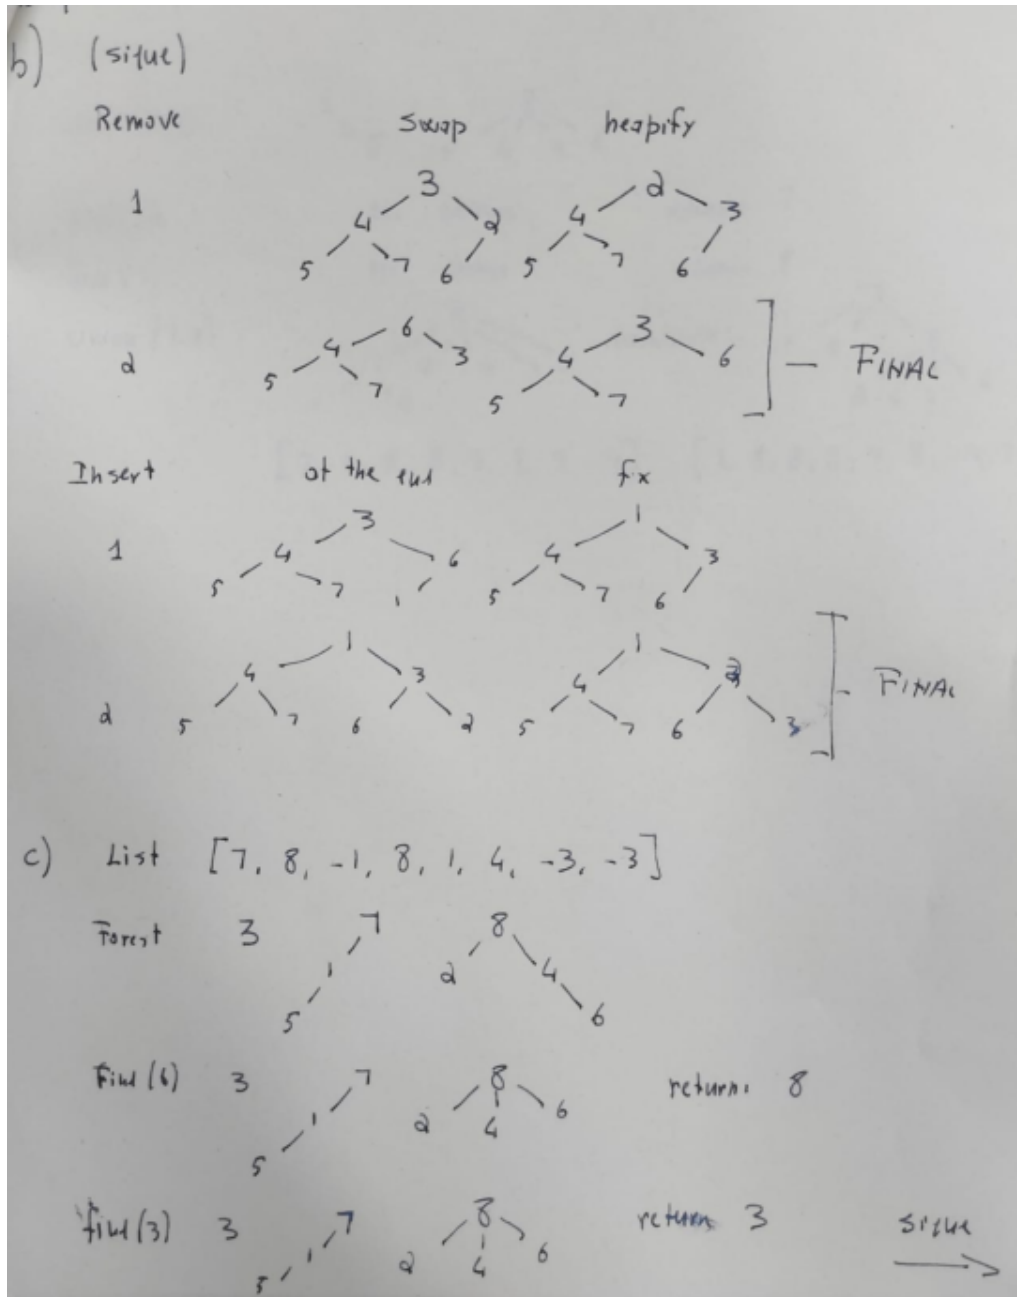 b) (sigue)
Remove swap heapify
1
3
4 2
5 7 6
2
4 3
5 7 6
2
6
4 3
5 7
3
4 6
5 7
] — FINAL
Insert at the end fix
1
3
4 6
5 7 1
1
4 3
5 7 6
2
1
4 3
5 7 6 2
1
4 2
5 7 6 3
] - FINAL
c) List [7, 8, -1, 8, 1, 4, -3, -3]
Forest 3
7
1
5
8
2 4
6
Find (6) 3
7
1
5
8
2 4 6
return: 8
find (3) 3
7
1
5
8
2 4 6
return 3
sigue